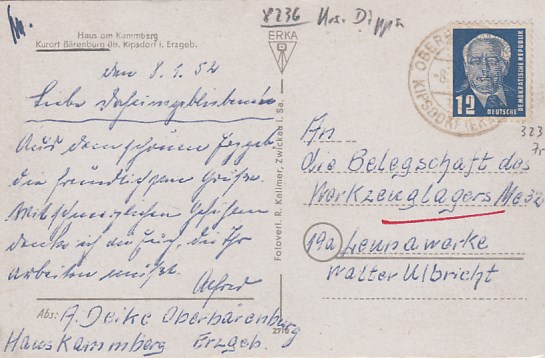 8236 Urs. Dippo
Haus am Kammberg
Kurort Bärenburg üb. Kipsdorf i. Erzgeb.
ERKA
den 8.1.52
Liebe Daheimgebliebenen
Aus dem schönen Erzgeb
die freundlichsten Grüße.
Mit schmerzlichen Gefühlen
denke ich an Euch, die Ihr
arbeiten müßt.
Alfred
Abs: A. Deike Oberbärenburg
Haus Kammberg Erzgeb.
Fotoverl. R. Kallmer, Zwickau i. Sa.
OBERB
KIPSDORF (ERZ
12
DEUTSCHE
DEMOKRATISCHE REPUBLIK
323
An
die Belegschaft des
Werkzeuglagers Me32
19a Leunawerke
Walter Ulbricht